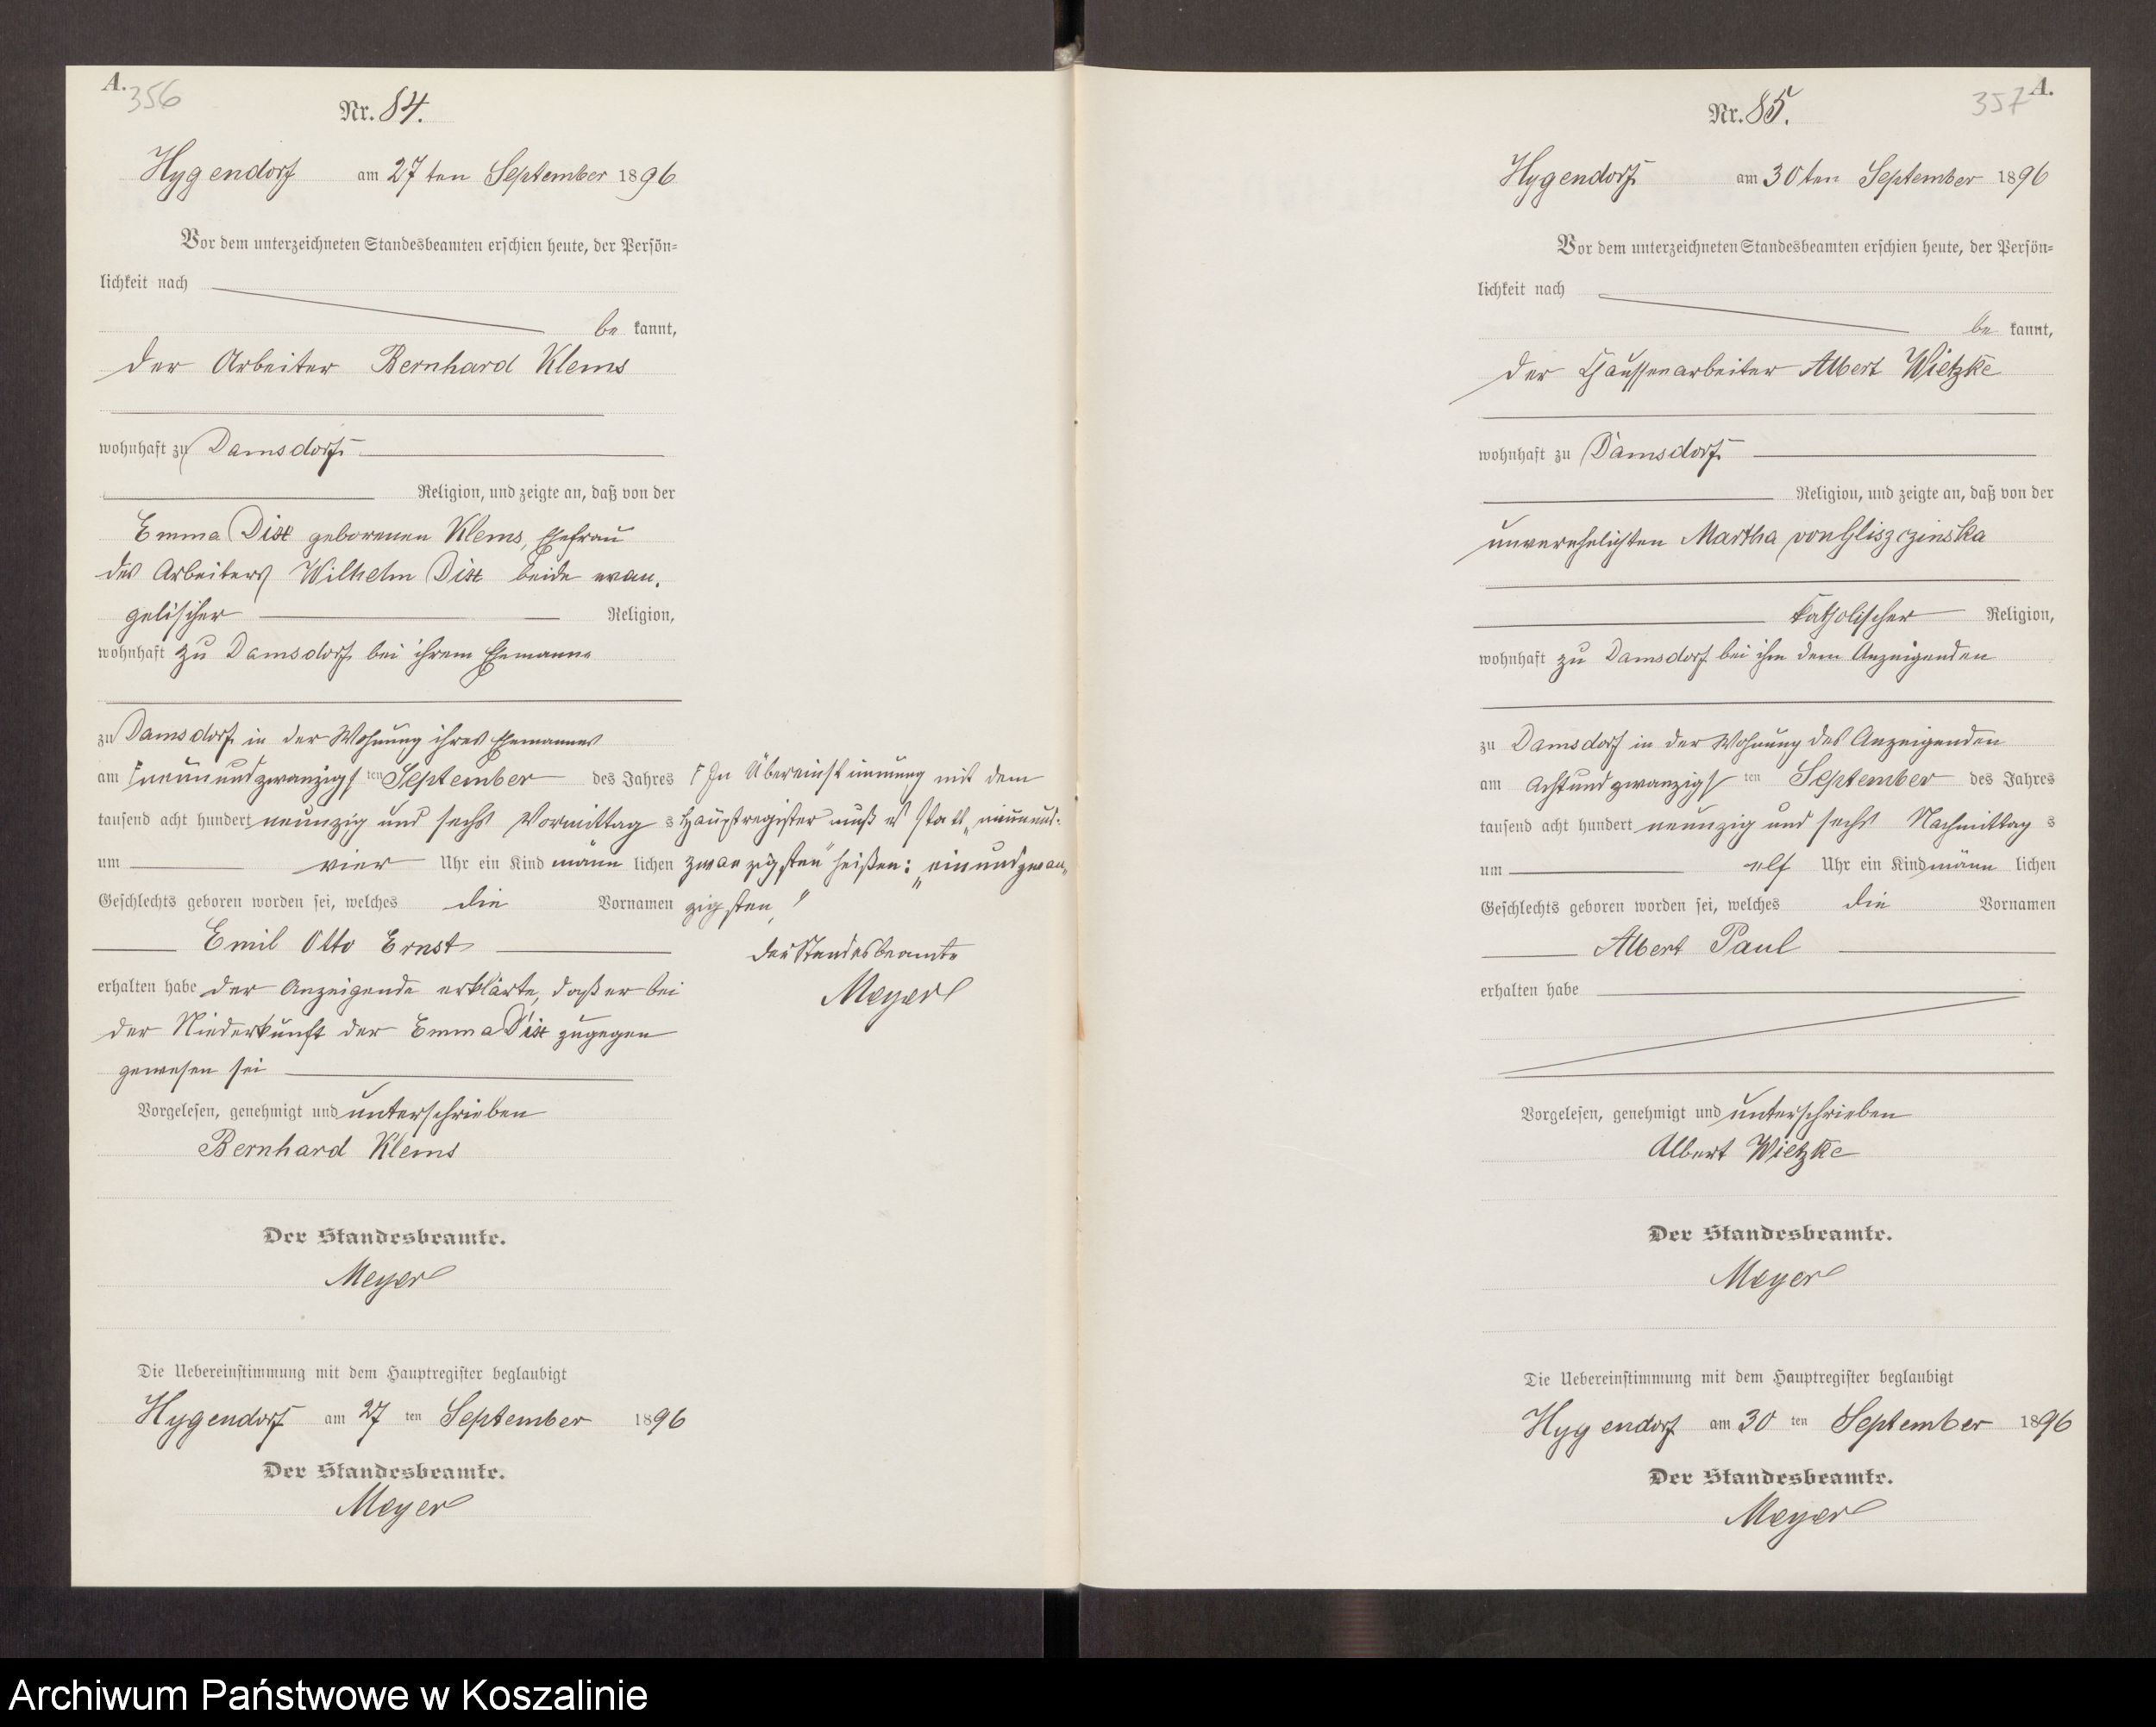 A.
356
Nr. 84.
Hygendorf am 27 ten September 1896
Vor dem unterzeichneten Standesbeamten erschien heute, der Persön-
lichkeit nach
be kannt,
der Arbeiter Bernhard Klems
wohnhaft zu Damsdorf
Religion, und zeigte an, daß von der
Emma geborenen Klems, Ehefrau
des Arbeiters Wilhelm beide evan.
gelischer Religion,
wohnhaft zu Damsdorf bei ihrem Ehemanne
zu Damsdorf in der Wohnung ihres Ehemannes
am neunundzwanzigs ten September des Jahres
tausend acht hundert neunzig und sechs Vormittag s
um vier Uhr ein Kind männ lichen
Geschlechts geboren worden sei, welches die Vornamen
Emil Otto Ernst
erhalten habe der Anzeigende erklärte, daß er bei
der Niederkunft der Emma zugegen
gewesen sei
Vorgelesen, genehmigt und unterschrieben
Bernhard Klems
Der Standesbeamte.
Meyer
Die Uebereinstimmung mit dem Hauptregister beglaubigt
Hygendorf am 27 ten September 1896
Der Standesbeamte.
Meyer
In Übereinstimmung mit dem
Hauptregister muß es statt „neunund-
zwanzigsten“ heißen: „einundzwan-
zigsten“
Der Standesbeamte
Meyer
357
A.
Nr. 85.
Hygendorf am 30 ten September 1896
Vor dem unterzeichneten Standesbeamten erschien heute, der Persön-
lichkeit nach
be kannt,
der Albert Wietzke
wohnhaft zu Damsdorf
Religion, und zeigte an, daß von der
unverehelichten Martha von Gliszczinska
katholischer Religion,
wohnhaft zu Damsdorf bei ihm dem Anzeigenden
zu Damsdorf in der Wohnung des Anzeigenden
am Achtundzwanzigs ten September des Jahres
tausend acht hundert neunzig und sechs Nachmittag s
um elf Uhr ein Kind männ lichen
Geschlechts geboren worden sei, welches die Vornamen
Albert Paul
erhalten habe
Vorgelesen, genehmigt und unterschrieben
Albert Wietzke
Der Standesbeamte.
Meyer
Die Uebereinstimmung mit dem Hauptregister beglaubigt
Hygendorf am 30 ten September 1896
Der Standesbeamte.
Meyer
Archiwum Państwowe w Koszalinie